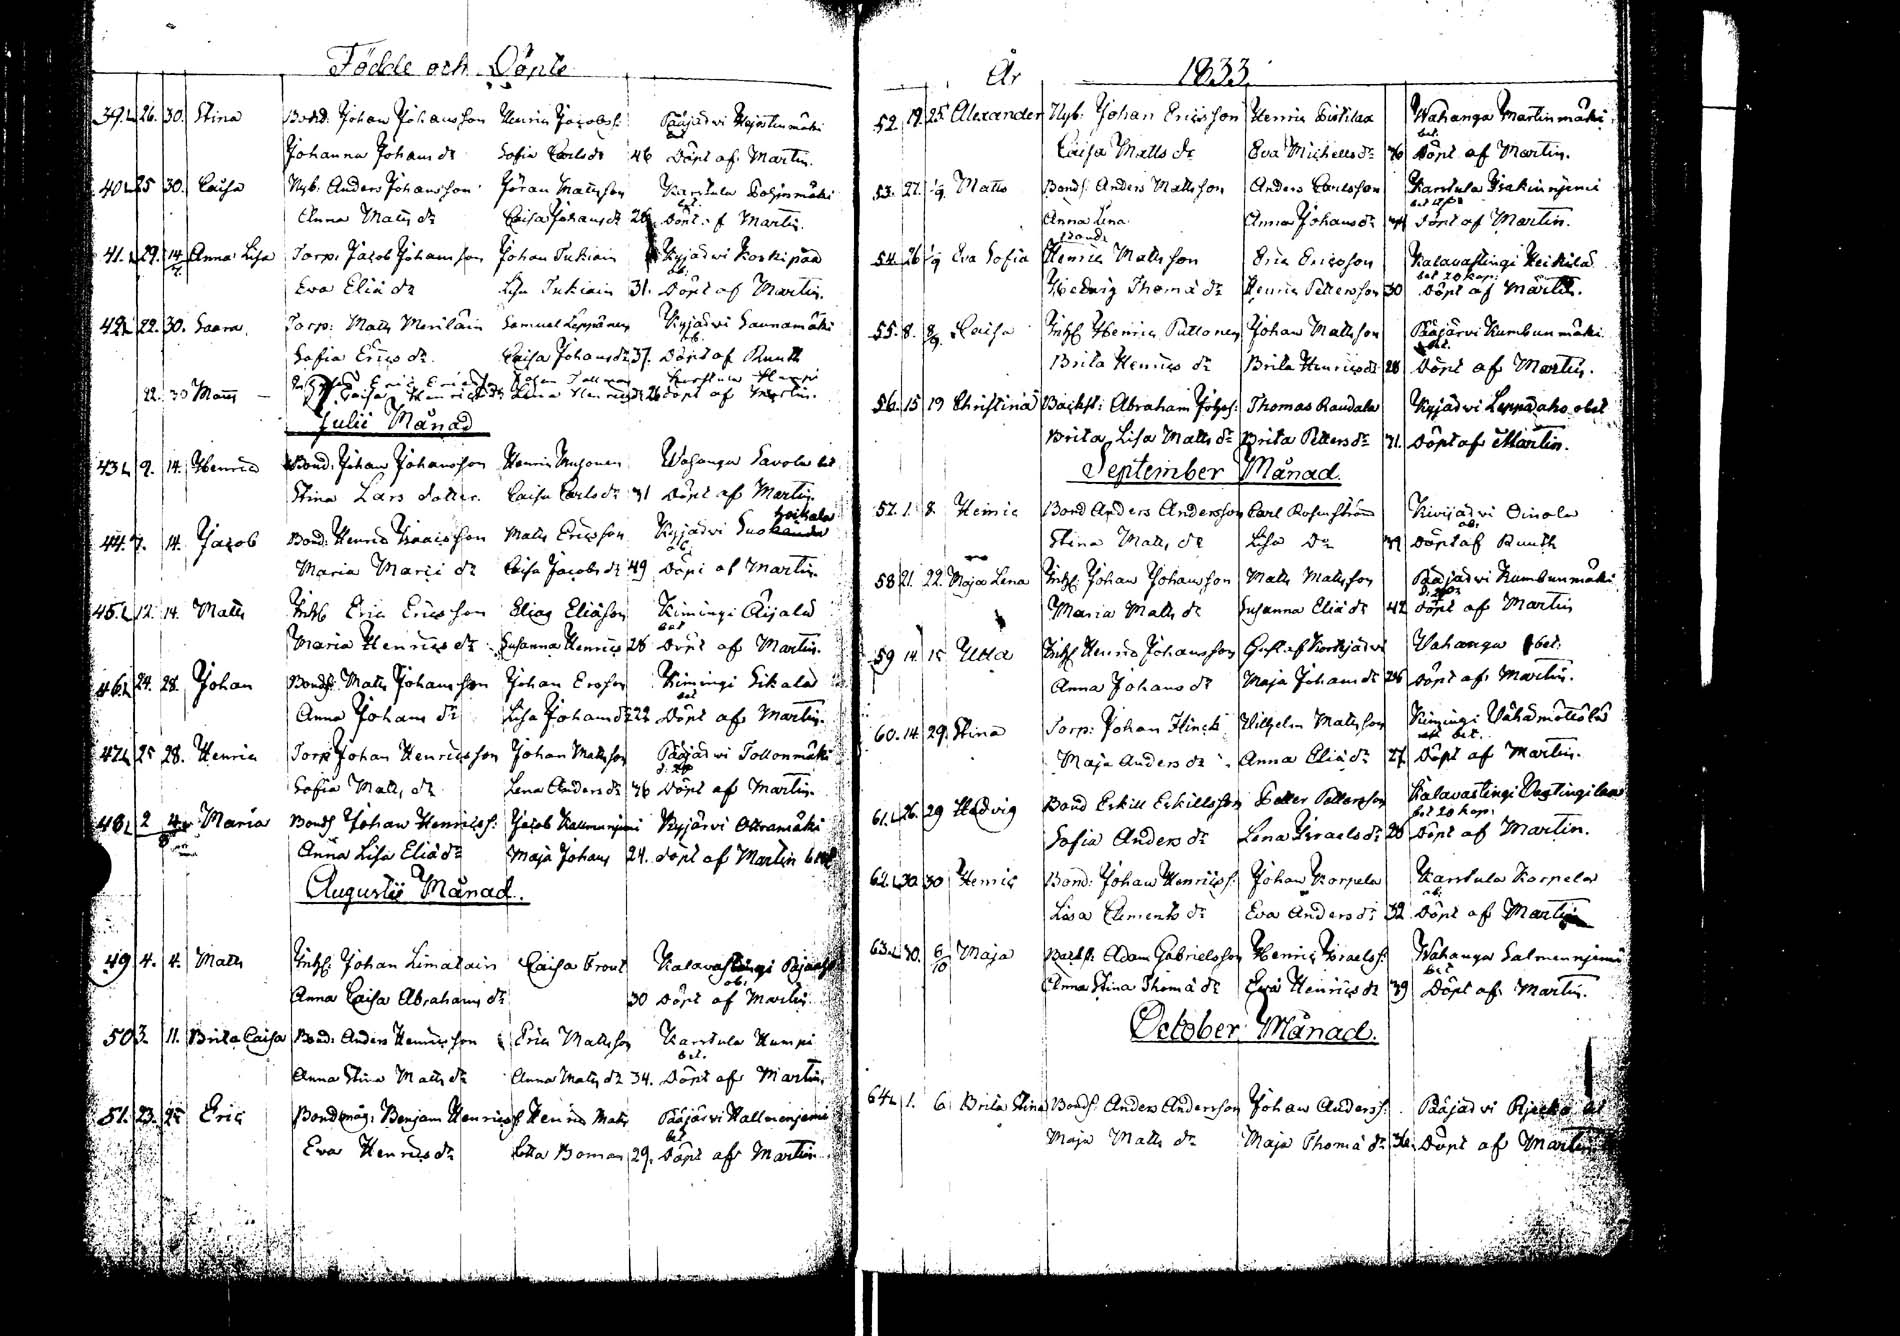 Födde och Döpte
39. 26. 30. Stina Bond. Johan Johansson Henric Jacobss: Pääjärvi
Johanna Johans dr Sofia Carls dr 46 Döpt af Martin.
40 25 30. Caisa Nyb. Anders Johansson Jöran Mattsson Karstula
Anna Matts dr Caisa Johans dr 26 Döpt af Martin.
41. 29. 14/7 Anna Lisa Torp. Jacob Johansson Johan Tukiain Kyjärvi Koskipää
Eva Eliä dr Lisa Tukiain 31. Döpt af Martin.
42 22. 30. Saara. Torp: Matts Meriläin Samuel Leppänen Kyjärvi Saunamäki
Sofia Erics dr Caisa Johans dr 37. Döpt af Ruuth
22. 30 Matts Eric Karstula Humpi
Caisa Henrics dr Lena Henrics dr 26 döpt af Martin.
Julii Månad
43 9. 14. Henric Bond. Johan Johansson Henric Wahanga Savola bet
Stina Lars dotter. Caisa Carls dr 31 Döpt af Martin.
44. 7. 14. Jacob Bond. Henric Isaacsson Matts Ericsson Kyjärvi
Maria Marci dr Caisa Jacobs dr 49 Döpt af Martin.
45. 12. 14. Matts Inhs Eric Ericsson Elias Eliäson Kimingi Äijälä
bet
Maria Henrics dr Susanna Henrics 26 Döpt af Martin.
46. 24. 28. Johan Bonds. Matts Johansson Johan Ersson Kimingi Sikala
bet
Anna Johans dr Lisa Johans dr 22 Döpt af Martin.
47 25 28. Henric Torp Johan Henricsson Johan Mattsson Pääjärvi Tollonmäki
Sofia Matts dr Lena Anders dr 36 Döpt af Martin.
48 2 4/8 Maria Bonds Johan Henricss: Jacob Kyjärvi Ottramäki
Anna Lisa Eliä dr Maja Johans 24. döpt af Martin bet
Augustii Månad.
49 4. 4. Matts Inhs: Johan Limatain Caisa Frout Kalavastingi
Anna Caisa Abrahams dr 30 Döpt af Martin
50 3. 11. Brita Caisa Bond: Anders Henricsson Eric Mattsson Karstula Humpi
bet.
Anna Stina Matts dr Anna Matts dr 34. Döpt af Martin.
51. 23. 25 Eric Bondmåg: Benjam Henricss Henric Matts Pääjärvi
bet
Eva Henrics dr Lotta Boman 29. Döpt af Martin
År 1833.
52. 19. 25 Alexander Nyb: Johan Ericsson Henric Wahanga Martinmäki
bet.
Caisa Matts dr Eva Michells dr 36 Döpt af Martin.
53. 27. 1/9 Matts Bonds: Anders Mattsson Anders Carlsson Karstula
Anna Lena Anna Johans dr Döpt af Martin.
54. 26 1/9 Eva Sofia Henric Mattsson Eric Ericsson Kalavastingi Heikilä
bet 20 kop:
Hedvig Thomä dr Henric Pettersson 30 Döpt af Martin.
55. 8. 8/9. Caisa Inhs Henric Puttonen Johan Mattsson Pääjärvi Kumbunmäki
bet.
Brita Henrics dr Brita Henrics dr 28 Döpt af Martin.
56. 15 19 Christina Backst: Abraham Johss: Thomas Raudala Kyjärvi Leppäaho obet
Brita Lisa Matts dr Brita Petters dr 31. Döpt af Martin.
September Månad.
57. 1. 8. Henric Bond Anders Andersson Carl Rosenström Kivijärvi Oinola
Stina Matts dr Lisa Dr 39 Döpt af Ruuth
58 21. 22. Maja Lena Inhs: Johan Johansson Matts Mattsson Pääjärvi Kumbunmäki
Maria Matts dr Susanna Eliä dr 42 döpt af Martin
59 14 15 Ulla Inhs Henric Johansson Wahanga obet.
Anna Johans dr Maja Johans dr 26 Döpt af Martin.
60. 14. 29. Stina Torp: Johan Flinck Wilhelm Mattsson Kimingi Vähämöttölä
bet.
Maja Anders dr Anna Eliä dr 27. Döpt af Martin.
61. 26. 29 Hedvig Bond Eskill Eskillsson Petter Pettersson Kalavastingi
bet 20 kop:
Sofia Anders dr Lena Israels dr 28 Döpt af Martin.
62. 30. 30 Henric Bond: Johan Henricss: Johan Korpela Karstula Korpela
Lisa Clements dr Eva Anders dr 32 Döpt af Martin
63. 30. 6/10 Maja Backst: Adam Gabrielsson Henric Israelss: Wahanga Salmennjemi
bet
Anna Stina Thomä dr Eva Henrics dr 39 Döpt af Martin.
October Månad.
64 1. 6. Brita Stina Bonds: Anders Andersson Johan Anderss: Pääjärvi bet
Maja Matts dr Maja Thomä dr 36 Döpt af Martin